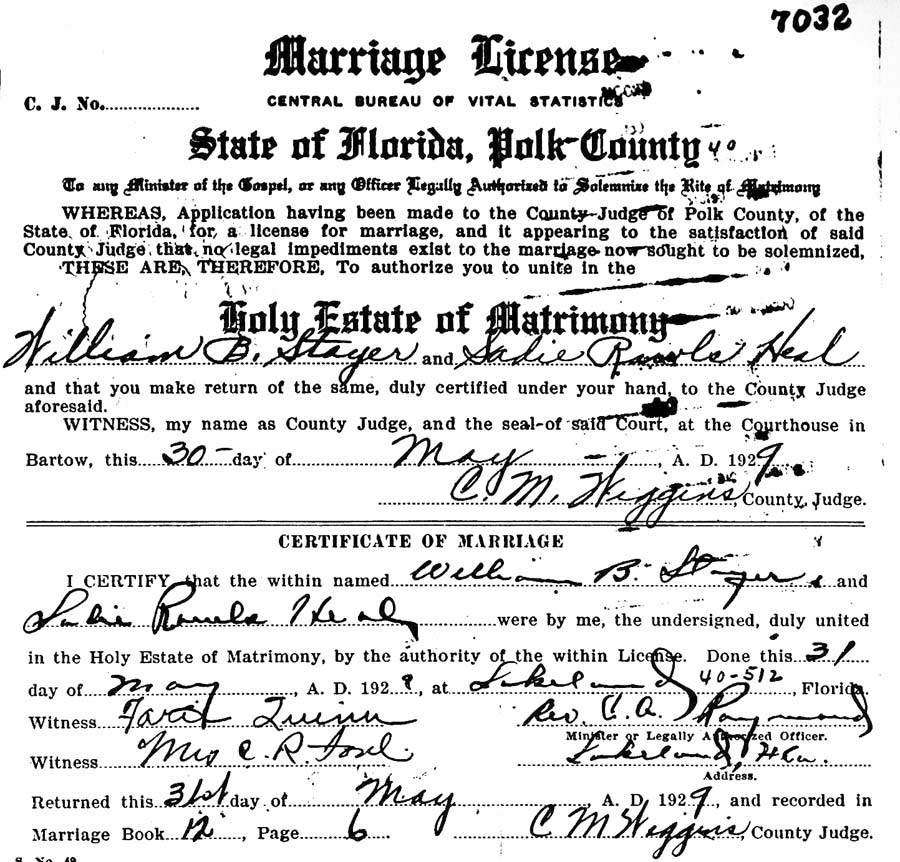 7032
Marriage License
C. J. No....................
CENTRAL BUREAU OF VITAL STATISTICS
State of Florida, Polk County
40
To any Minister of the Gospel, or any Officer Legally Authorized to Solemnize the Rite of Matrimony
WHEREAS, Application having been made to the County Judge of Polk County, of the
State of Florida, for a license for marriage, and it appearing to the satisfaction of said
County Judge that no legal impediments exist to the marriage now sought to be solemnized,
THESE ARE, THEREFORE, To authorize you to unite in the
Holy Estate of Matrimony
William B. Stayer and Sadie Rawls Heal
and that you make return of the same, duly certified under your hand, to the County Judge
aforesaid.
WITNESS, my name as County Judge, and the seal of said Court, at the Courthouse in
Bartow, this 30 day of May, A. D. 1929
C. M. Wiggins, County Judge.
CERTIFICATE OF MARRIAGE
I CERTIFY that the within named William B. Stayer and
Sadie Rawls Heal were by me, the undersigned, duly united
in the Holy Estate of Matrimony, by the authority of the within License. Done this 31
day of May, A. D. 1929, at Lakeland 40-512, Florida.
Witness Quinn Rev. C. A. Raymond
Minister or Legally Authorized Officer.
Witness Mrs C. R. Lakeland, Fla.
Address.
Returned this 31st day of May A. D. 1929, and recorded in
Marriage Book 12, Page 6 C M Wiggins, County Judge.